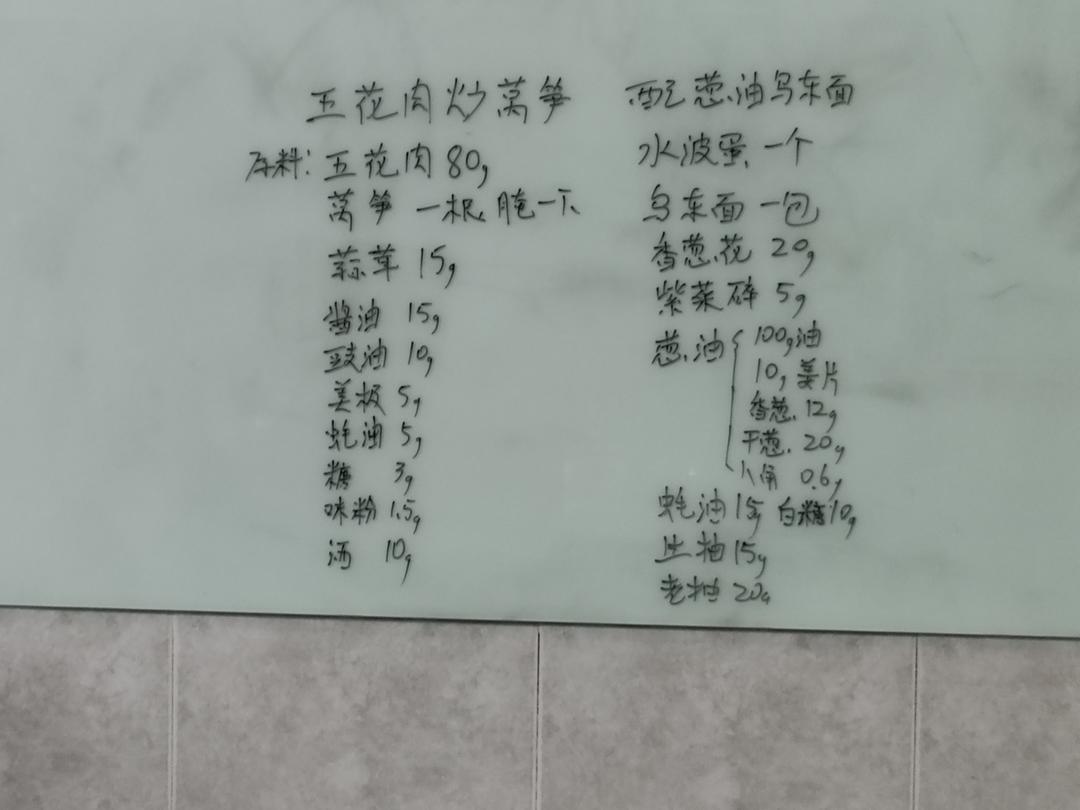 五花肉炒莴笋
原料: 五花肉 80g
莴笋 一根 腌一下
蒜茸 15g
酱油 15g
豉油 10g
美极 5g
蚝油 5g
糖 3g
味粉 1.5g
酒 10g
配葱油乌东面
水波蛋 一个
乌东面 一包
香葱花 20g
紫菜碎 5g
葱油 100g油
10g 姜片
香葱 12g
干葱 20g
八角 0.6g
蚝油 15g 白糖 10g
生抽 15g
老抽 20g